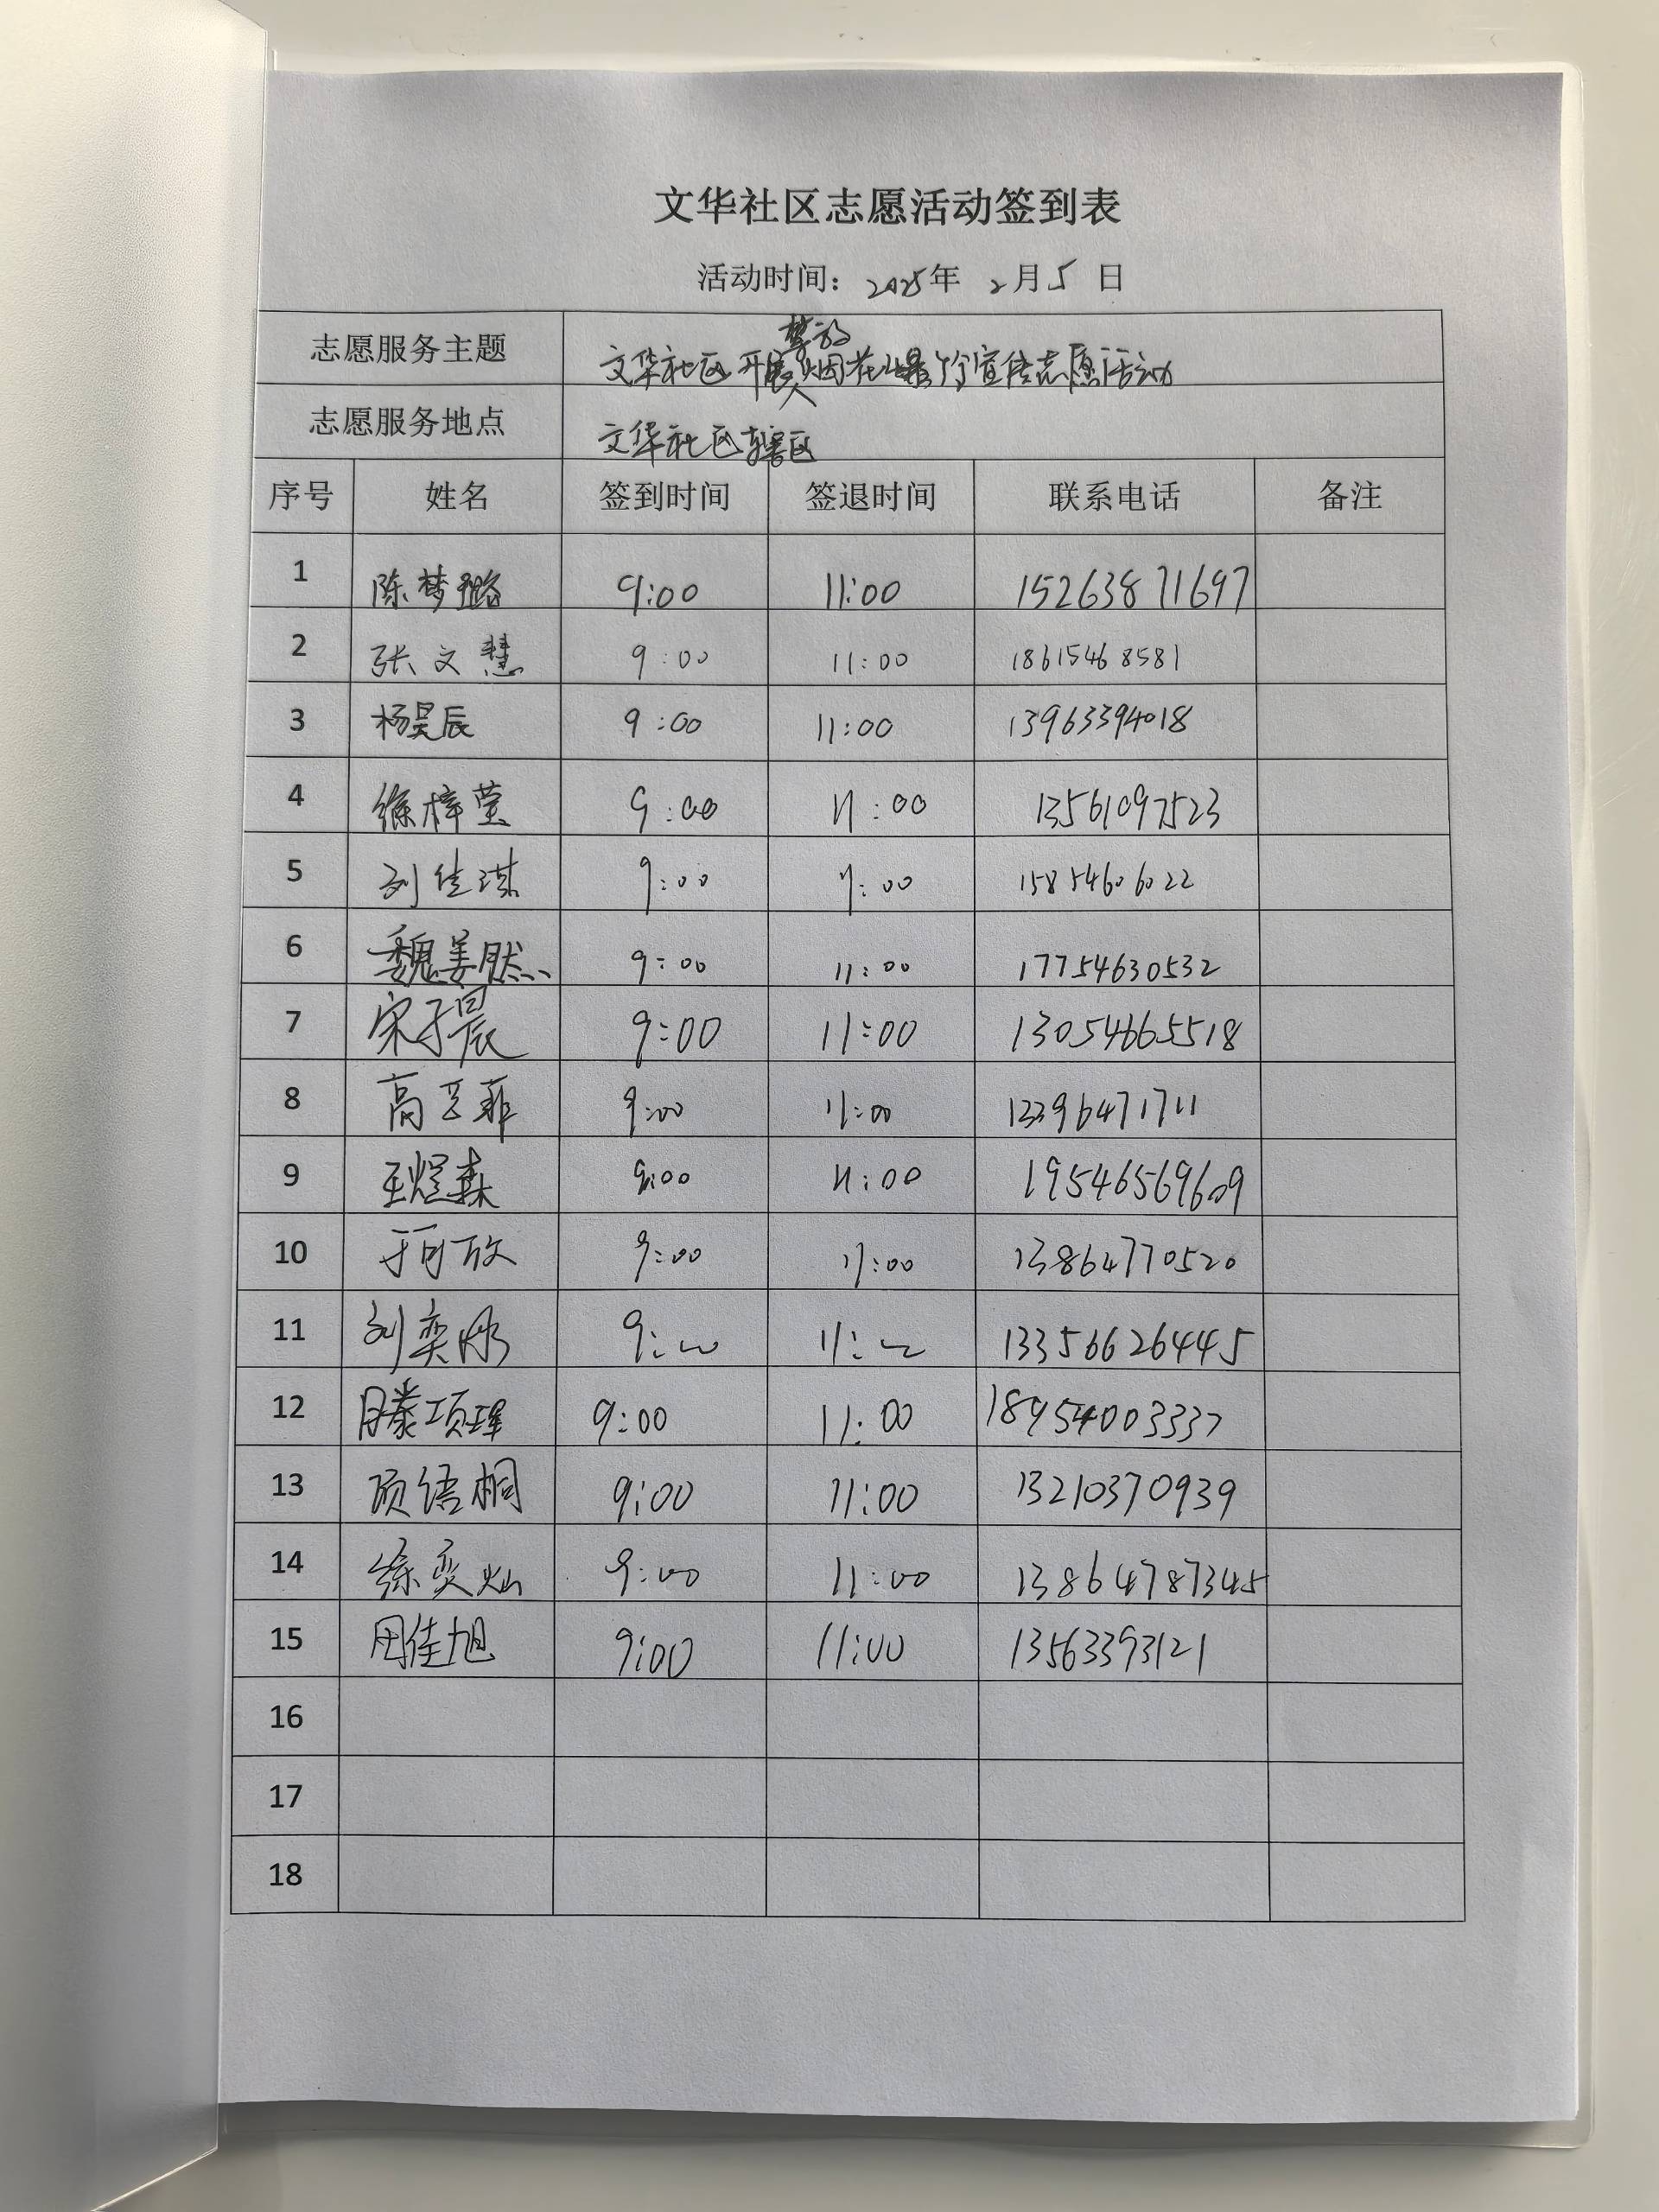 文华社区志愿活动签到表
活动时间：2025年 2月5日
志愿服务主题 文华社区开展禁放烟花爆竹宣传志愿活动
志愿服务地点 文华社区辖区
序号 姓名 签到时间 签退时间 联系电话 备注
1 陈梦璐 9:00 11:00 15263871697
2 张文慧 9:00 11:00 18615468581
3 杨昊辰 9:00 11:00 13963394018
4 徐梓萱 9:00 11:00 13561097523
5 刘佳琪 9:00 11:00 15854606022
6 魏姜然 9:00 11:00 17754630532
7 宋子晨 9:00 11:00 13054665518
8 高艺菲 9:00 11:00 13396471711
9 王煜森 9:00 11:00 19546569609
10 于可欣 9:00 11:00 13864770520
11 刘奕彤 9:00 11:00 13356626445
12 滕项珲 9:00 11:00 18954003337
13 顾语桐 9:00 11:00 13210370939
14 徐奕灿 9:00 11:00 13864787345
15 田佳旭 9:00 11:00 13563393121
16
17
18